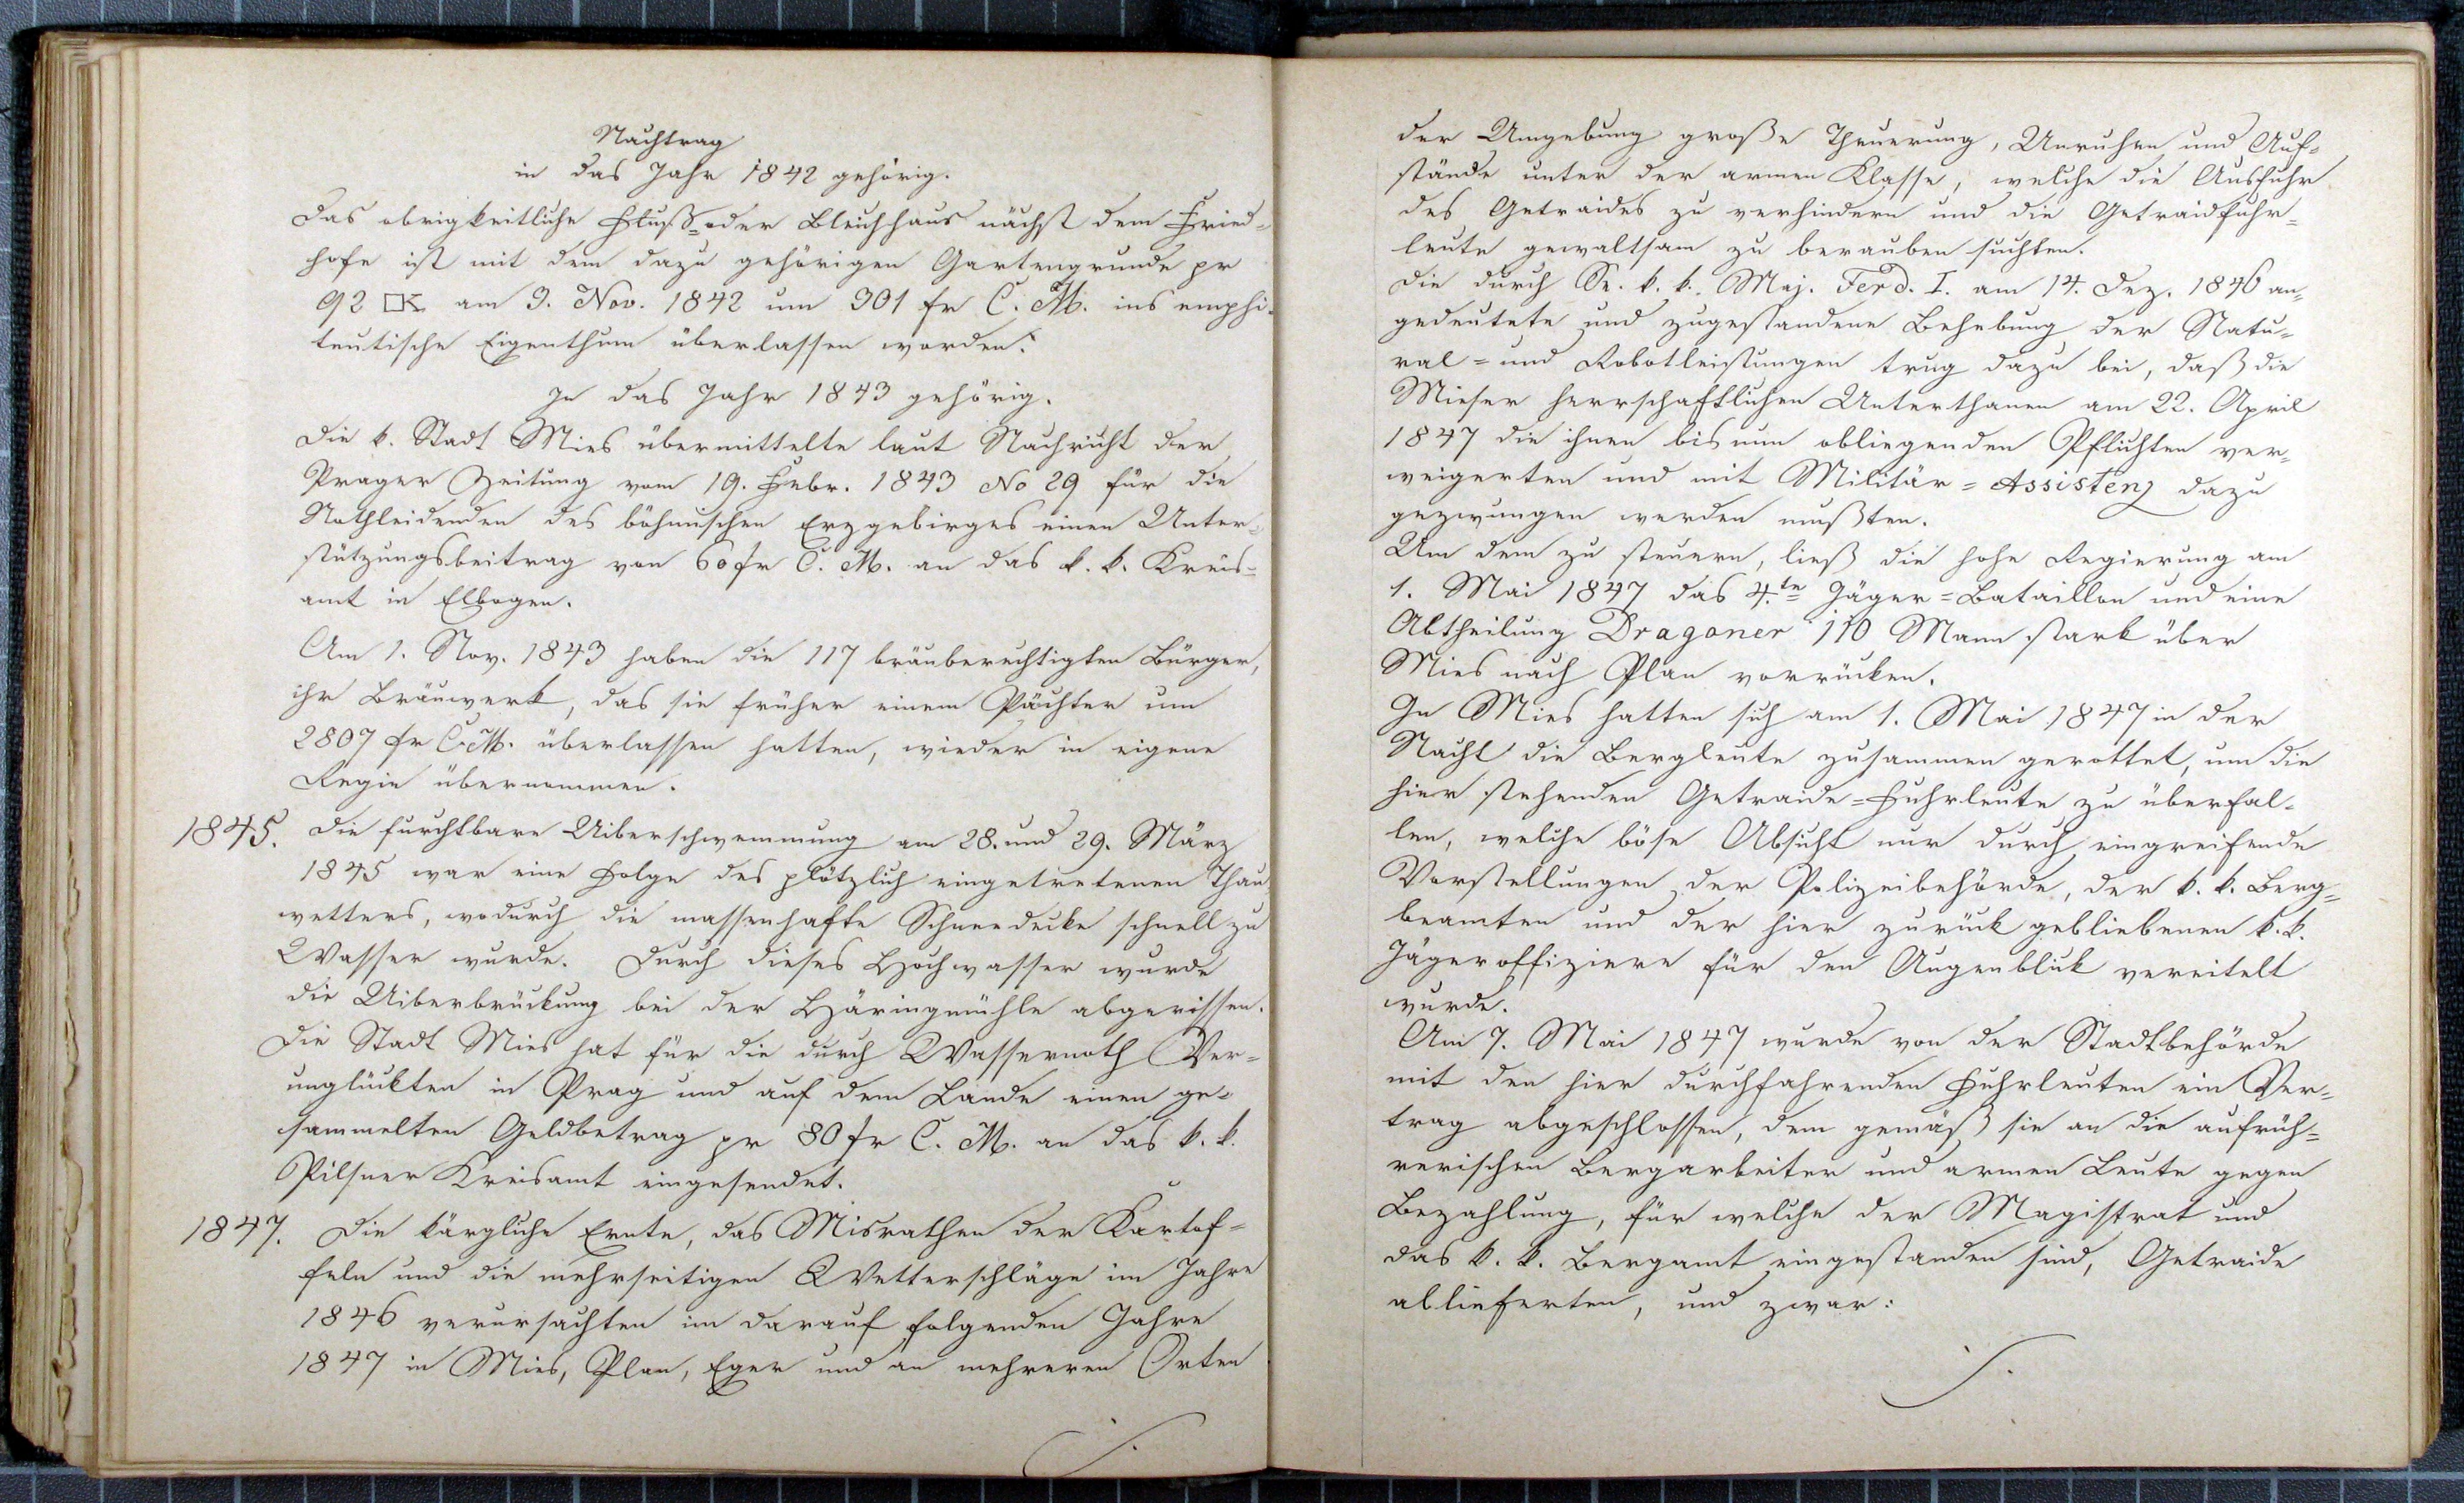 Nachtrag
in das Jahr 1842 gehörig.
Das obrigkeitliche Fluß- oder Bleichhaus nächst dem Fried-
hofe ist mit dem dazu gehörigen Gartengrunde pr
92 □K am 9. Nov. 1842 um 301 fr C. M. ins emphi-
teutische Eigenthum überlassen worden.
In das Jahr 1843 gehörig.
Die k. Stadt Mies übermittelte laut Nachricht der
Prager Zeitung vom 19. Febr. 1843 No 29 für die
Nothleidenden des böhmischen Erzgebirges einen Unter-
stützungsbeitrag von 60 fr C. M. an das k. k. Kreis-
amt in Elbogen.
Am 1. Nov. 1843 haben die 117 bräuberechtigten Bürger,
ihr Bräuwerk, das sie früher einem Pächter um
2807 fr C. M. überlassen hatten, wieder in eigene
Regie übernommen.
1845. Die furchtbare Uiberschwemmung am 28. und 29. März
1845 war eine Folge des plötzlich eingetretenen Thau-
wetters, wodurch die massenhafte Schneedecke schnell zu
Wasser wurde. Durch dieses Hochwasser wurde
die Uiberbrückung bei der Häringmühle abgerissen.
Die Stadt Mies hat für die durch Wassernoth Ver-
unglückten in Prag und auf dem Lande einen ge-
sammelten Geldbetrag pr 80 fr C. M. an das k. k.
Pilsner Kreisamt eingesendet.
1847. Die kärgliche Ernte, das Misrathen der Kartof-
feln und die mehrseitigen Wetterschläge im Jahre
1846 verursachten im darauf folgenden Jahre
1847 in Mies, Plan, Eger und an mehreren Orten
der Umgebung große Theuerung, Unruhen und Auf-
stände unter der armen Klasse, welche die Ausfuhr
des Getraides zu verhindern und die Getraidfuhr-
leute gewaltsam zu berauben suchten.
Die durch Se. k. k. Maj. Ferd. I. am 14. Dez. 1846 an-
gedeutete und zugestandene Behebung der Natu-
ral- und Robotleistungen trug dazu bei, daß die
Mieser herrschaftlichen Unterthanen am 22. April
1847 die ihnen bis nun obliegenden Pflichten ver-
weigerten und mit Militär-Assistenz dazu
gezwungen werden mußten.
Um dem zu steuern, ließ die hohe Regierung am
1. Mai 1847 das 4.te Jäger-Bataillon und eine
Abtheilung Dragoner 110 Mann stark über
Mies nach Plan vorrücken.
In Mies hatten sich am 1. Mai 1847 in der
Nacht die Bergleute zusammen gerottet, um die
hier stehenden Getraide-Fuhrleute zu überfal-
len, welche böse Absicht nur durch eingreifende
Vorstellungen der Polizeibehörde, der k. k. Berg-
beamten und der hier zurück gebliebenen k. k.
Jägeroffiziere für den Augenblick vereitelt
wurde.
Am 7. Mai 1847 wurde von der Stadtbehörde
mit den hier durchfahrenden Fuhrleuten ein Ver-
trag abgeschlossen, dem gemäß sie an die aufrüh-
rerischen Bergarbeiter und armen Leute gegen
Bezahlung, für welche der Magistrat und
das k. k. Bergamt eingestanden sind, Getraide
ablieferten, und zwar: